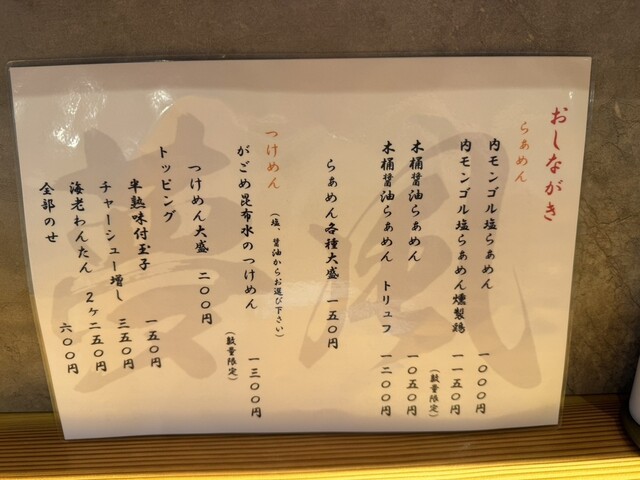 おしながき
らぁめん
内モンゴル塩らぁめん 一〇〇〇円
内モンゴル塩らぁめん燻製鶏 一一五〇円
(数量限定)
木桶醤油らぁめん 一〇五〇円
木桶醤油らぁめん トリュフ 一二〇〇円
らぁめん各種大盛 一五〇円
つけめん
(塩、醤油からお選び下さい)
がごめ昆布水のつけめん 一三〇〇円
(数量限定)
つけめん大盛 二〇〇円
トッピング
半熟味付玉子 一五〇円
チャーシュー増し 三五〇円
海老わんたん 2ヶ二五〇円
全部のせ 六〇〇円
風夢